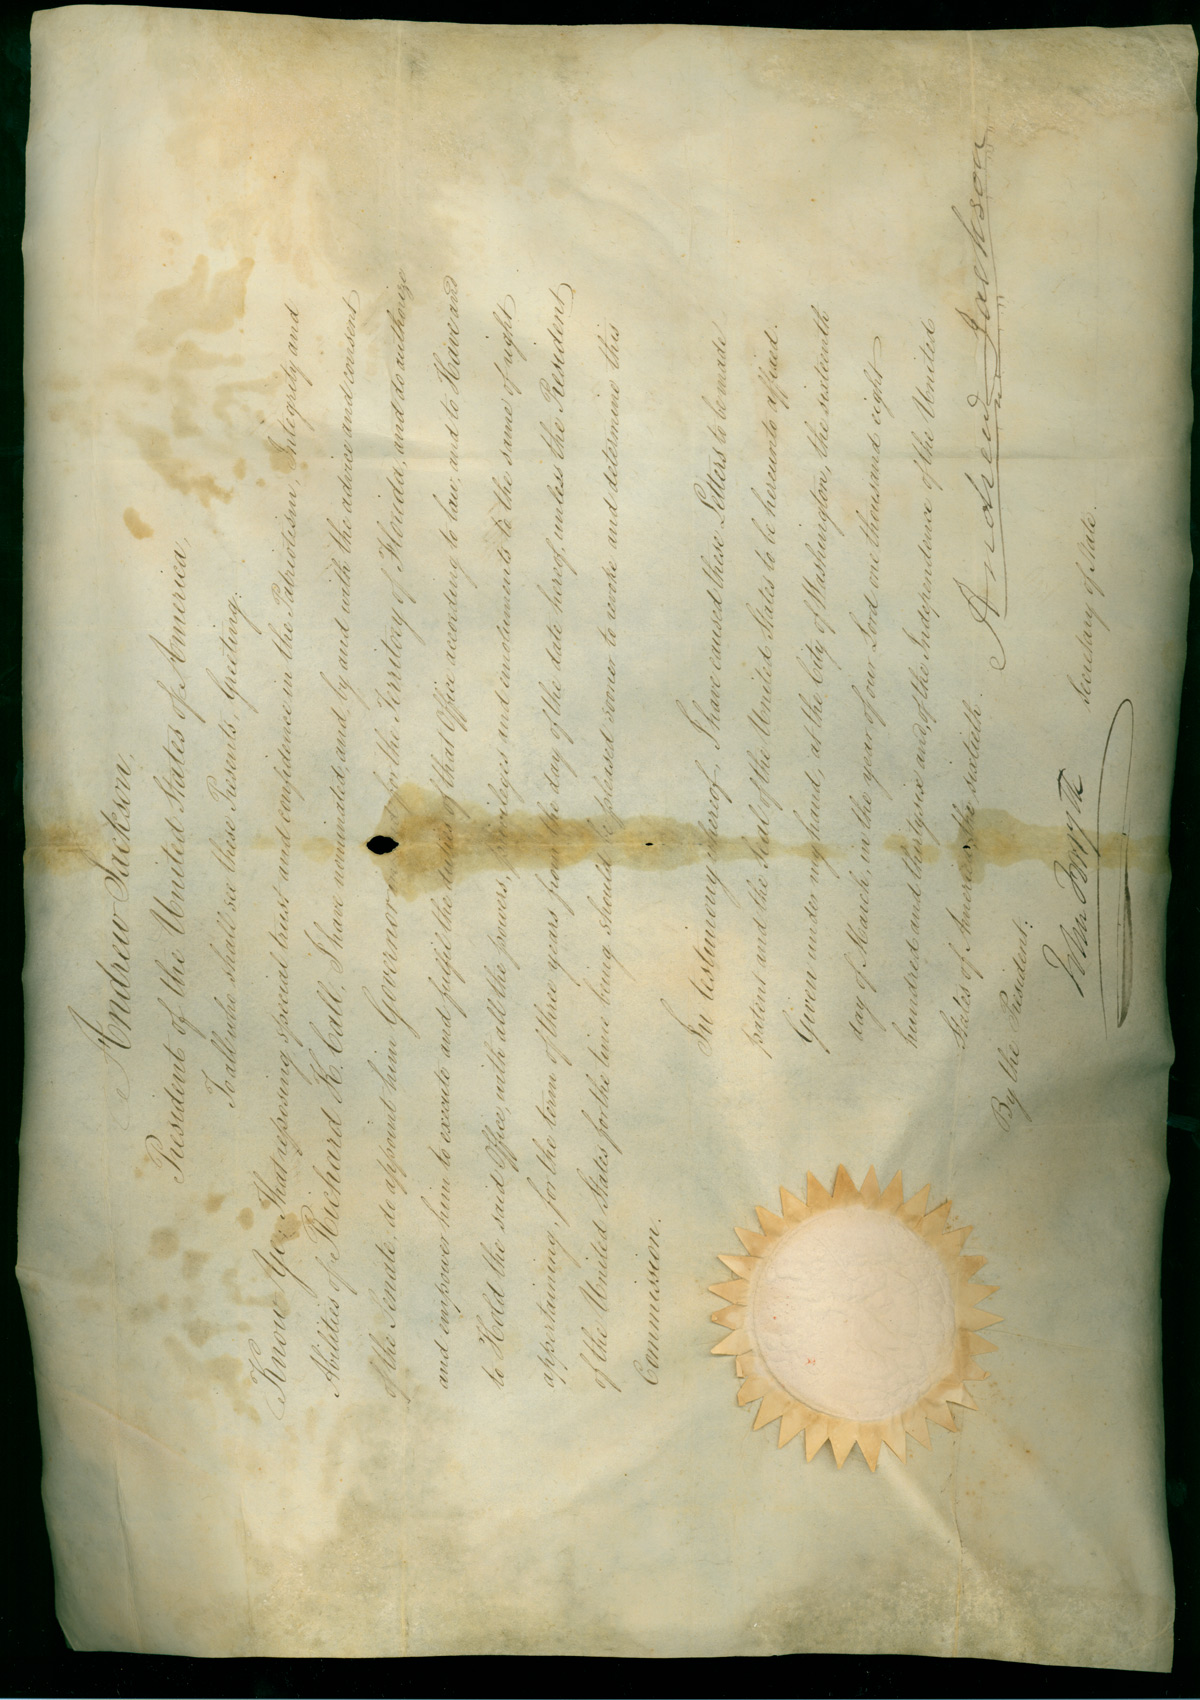 Andrew Jackson,
President of the United States of America,
To all who shall see these Presents, Greeting:
Know Ye, That reposing special trust and confidence in the Patriotism, Integrity and
Abilities of Richard K. Call, I have nominated, and, by and with the advice and consent
of the Senate, do appoint him Governor for the Territory of Florida, and do authorize
and empower him to execute and fulfil the duties of that Office according to law, and to Have and
to Hold the said Office, with all the powers, privileges and emoluments to the same of right
appertaining, for the term of three years from the day of the date hereof, unless the President
of the United States for the time being should be pleased sooner to revoke and determine this
Commission.
In testimony whereof, I have caused these Letters to be made
patent and the Seal of the United States to be hereunto affixed.
Given under my hand, at the City of Washington, the sixteenth
day of March, in the year of our Lord one thousand eight
hundred and thirty six and of the Independence of the United
States of America the sixtieth.
Andrew Jackson
By the President:
John Forsyth
Secretary of State.